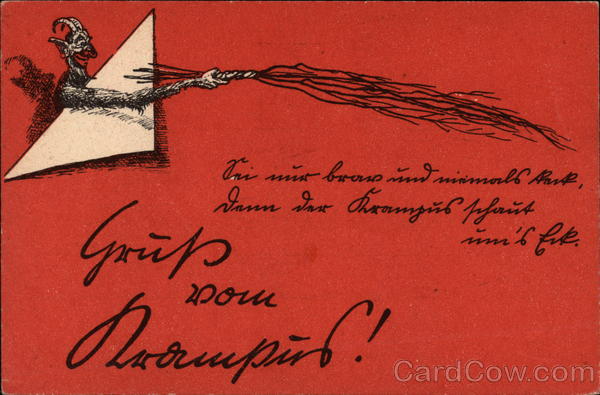 Sei nur brav und niemals keck,
Denn der Krampus schaut
um's Eck.
Gruß
vom
Krampus!
CardCow.com